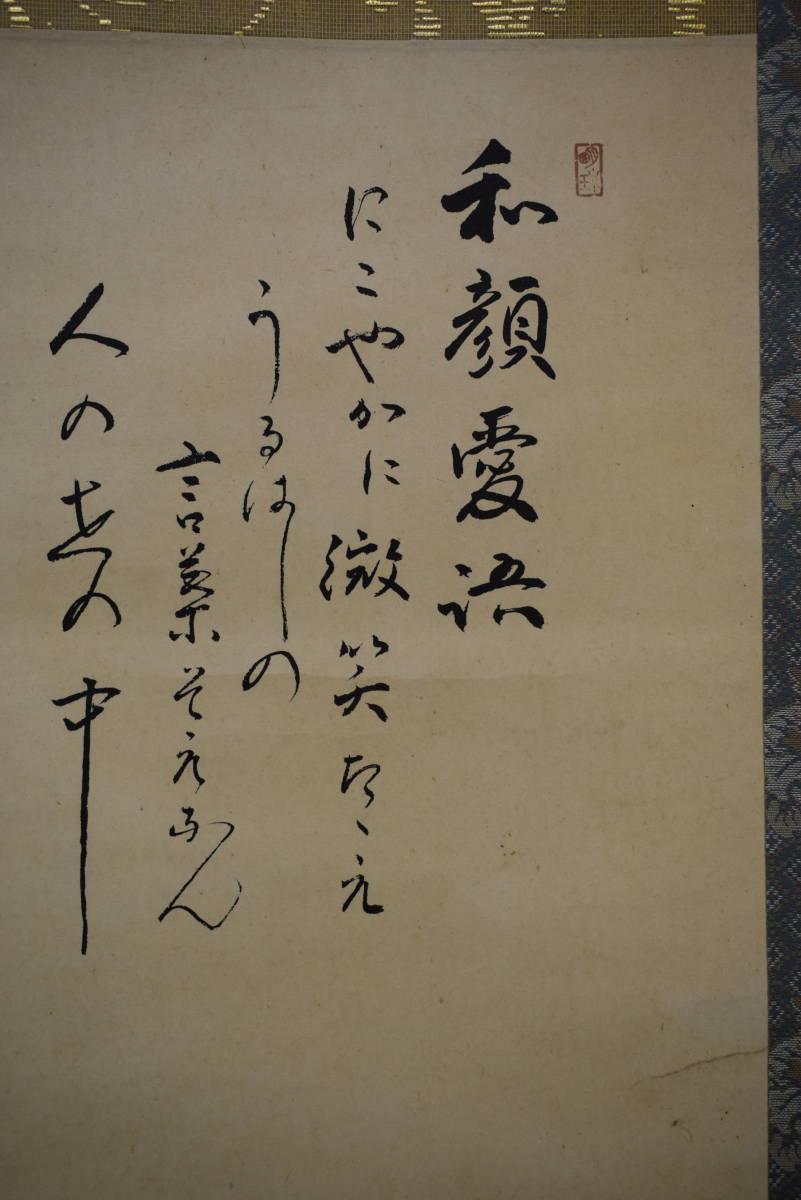 和顔愛語
にこやかに微笑たゝえ
うるはしの
言葉そえなん
人の世の中